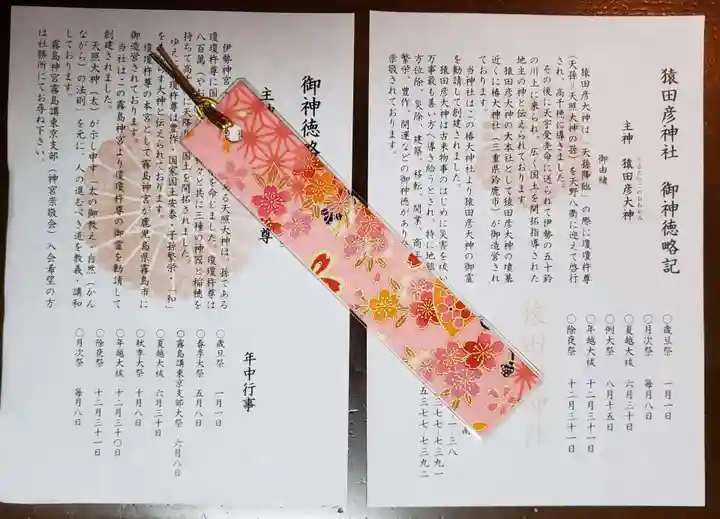 猿田彦神社　御神徳略記
さるたひこのおおかみ
主神　猿田彦大神
御由緒
猿田彦大神は、天孫降臨　の際に瓊瓊杵尊
（天孫＝天照大神の孫）を天野八衢に迎えて啓行
され、高千穂に導きました。
その後に天宇受売命に送られて伊勢の五十鈴
の川上に来られ、広く国土を開拓指導された
地主の神と伝えられております。
猿田彦大神の大本社として猿田彦大神の墳墓
近くに椿大神社（三重県鈴鹿市）が御造営され
ております。
当神社はこの椿大神社より猿田彦大神の御霊
を勧請して創建されました。
猿田彦大神は古来物事のはじめに災害を祓い
万事最も善い方へ導き給うとされ、特に地鎮
方位除、災除、建築、移転、開業、商工
繁栄、豊作、開運などの御神徳があり
崇敬されております。
○歳旦祭　一月一日
○月次祭　毎月八日
○夏越大祓　六月三十日
○例大祭　八月十五日
○年越大祓　十二月三十一日
○除夜祭　十二月三十一日
御神徳略
主神
尊
伊勢神宮
ある天照大神は、孫である
瓊瓊杵尊に国
を命じました。瓊瓊杵尊は
八百万（やお
々と共に三種の神器と稲穂を
持ちて高
に天降り
国土を開拓されました。
ゆえに
瓊瓊杵尊は豊作、国家国土安泰・子孫繁栄・「和」
す大神と伝えられております。
瓊瓊杵尊の本宮として霧島神宮が鹿児島県霧島市に
御造営されております。
当社はこの霧島神宮より瓊瓊杵尊の御霊を勧請して
創建されました。
天照大神（太）が示し申す「太の御教え、自然（かん
ながら）の法則」を元に、人の進むべき道を教義・講和
しております。
霧島神宮霧島講東京支部（神宮崇敬会）入会希望の方
は社務所にてお尋ね下さい。
年中行事
○歳旦祭　一月一日
○春季大祭　五月八日
○霧島講東京支部大祭　六月八日
○夏越大祓　六月三十日
○秋季大祭　十月八日
○年越大祓　十二月三十〇日
○除夜祭　十二月三十一日
○月次祭　毎月八日